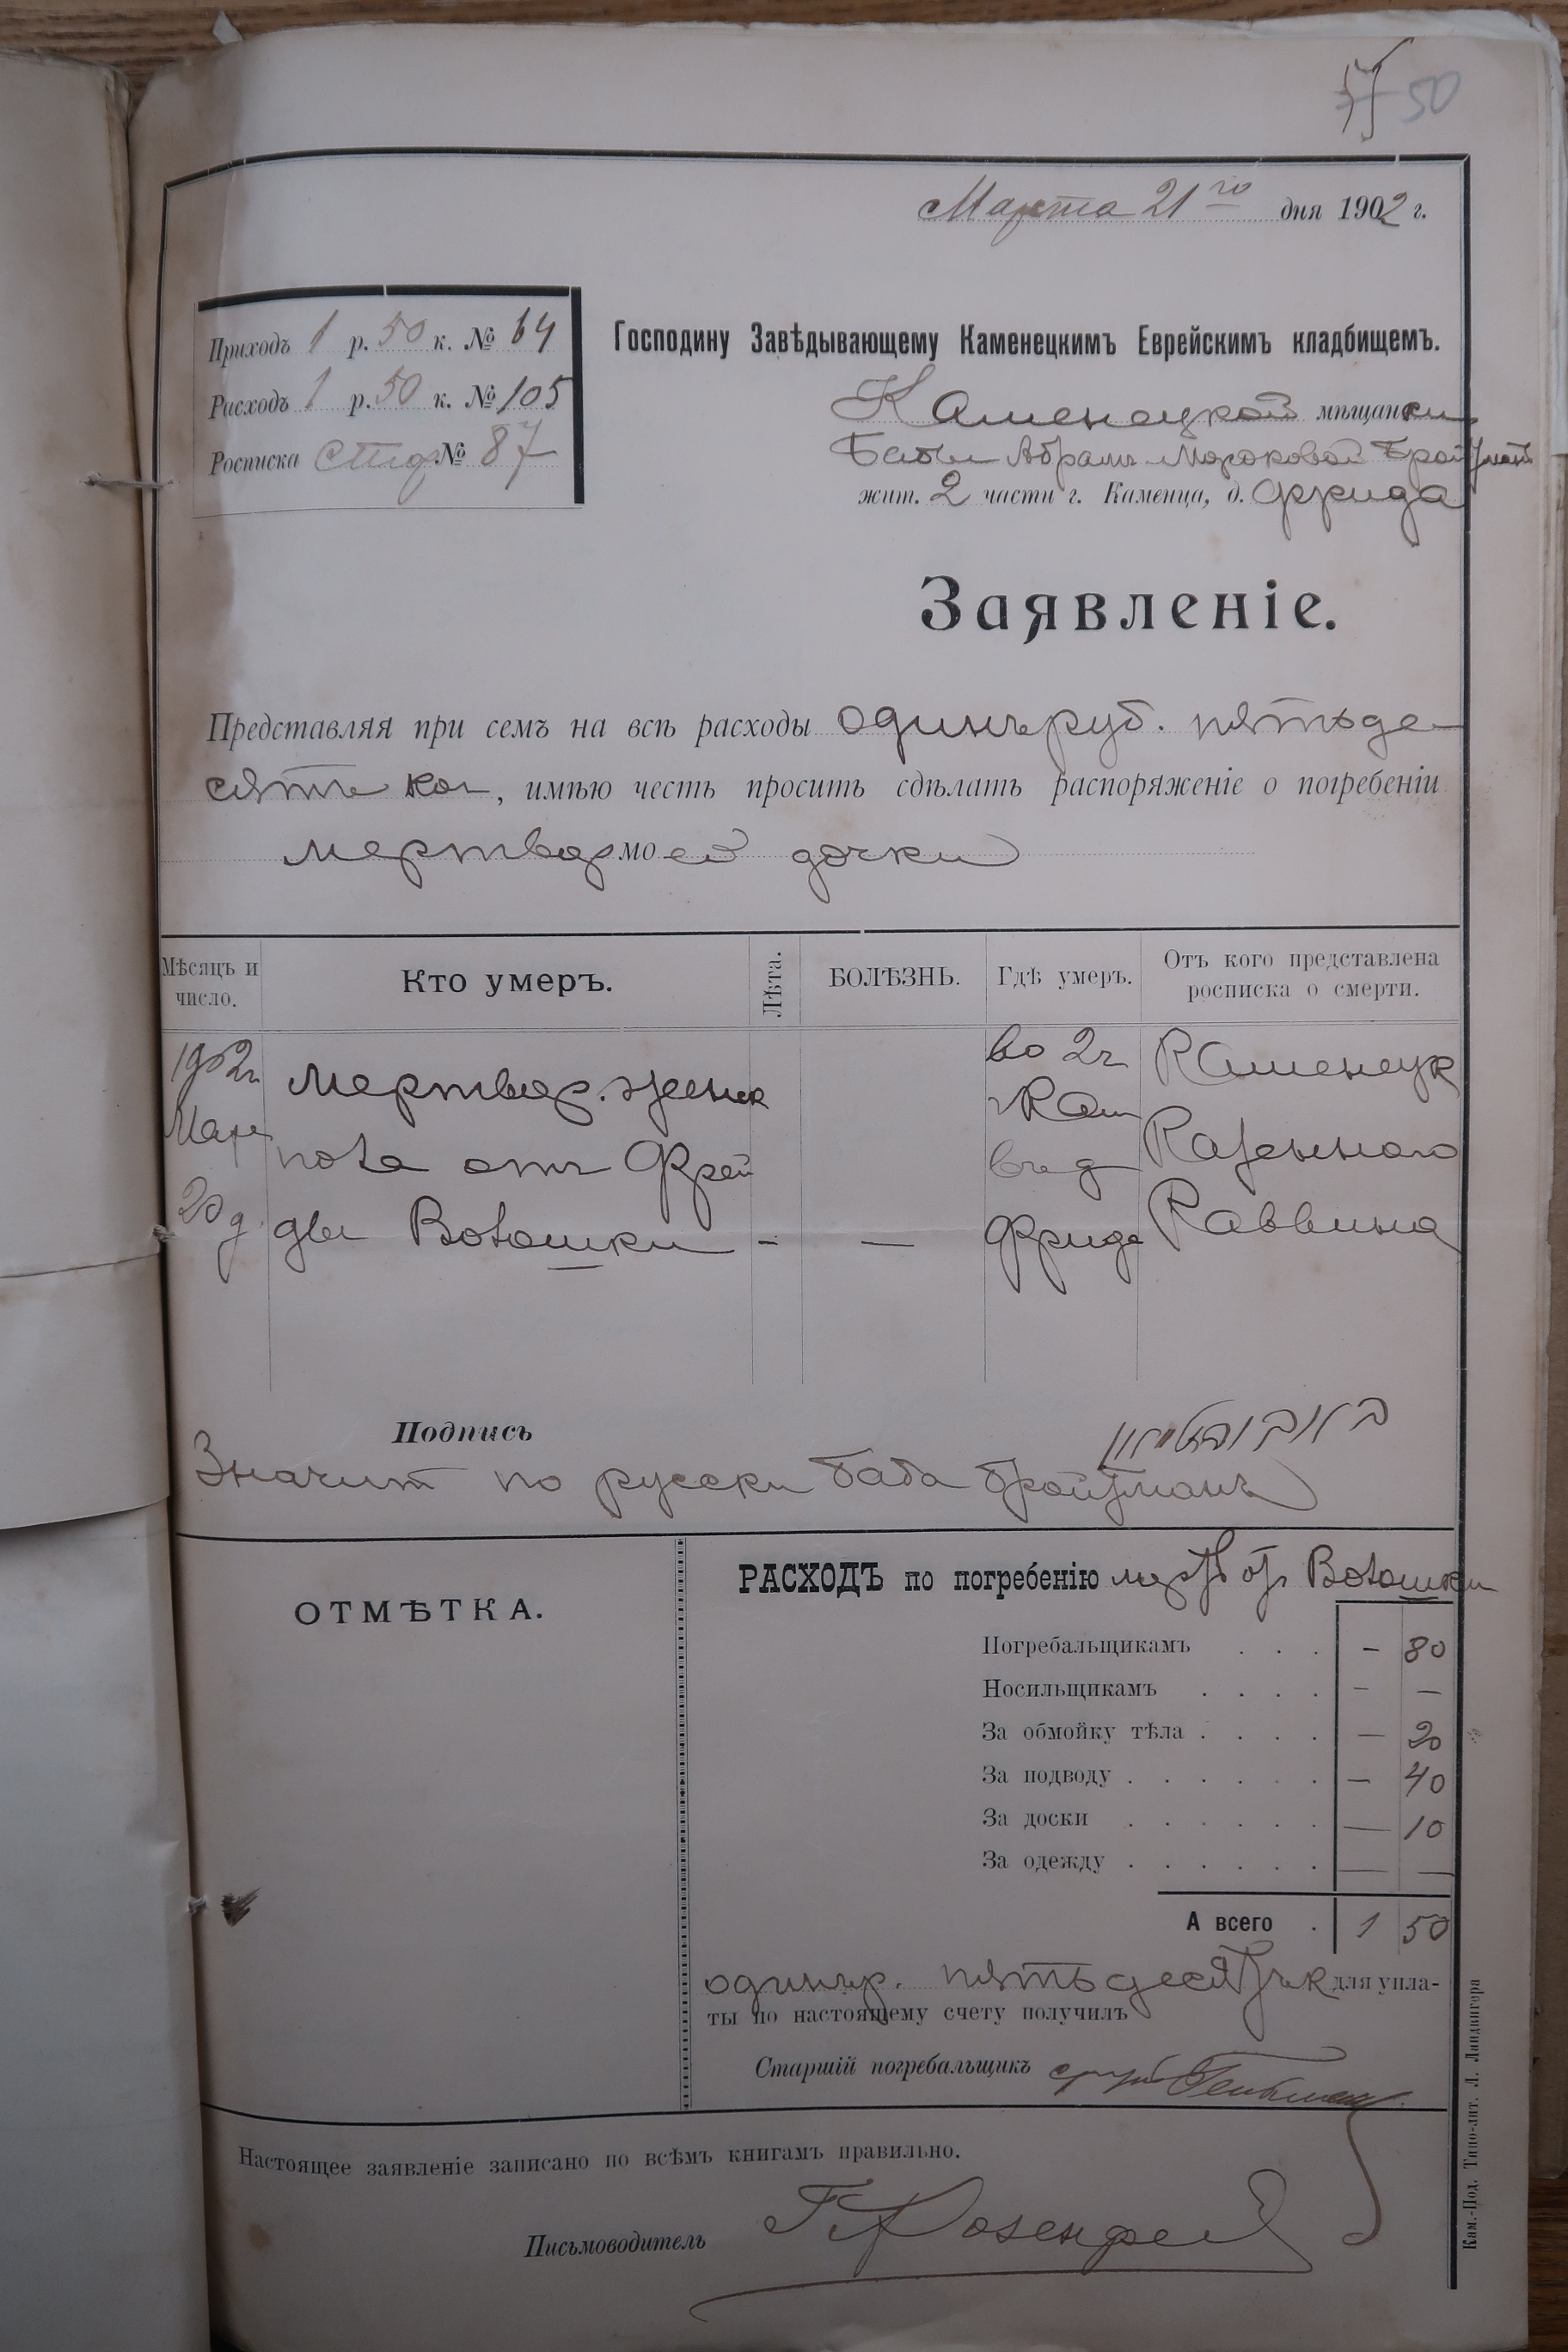 50
Марта 21го дня 1902 г.
Приходъ 1 р. 50 к. № 64
Расходъ 1 р. 50 к. № 105
Росписка № 87
Господину Завѣдывающему Каменецкимъ Еврейскимъ кладбищемъ.
Каменецкой мѣщанки
Бабы Абрамъ-Мороковой Бройтманъ
жит. 2 части г. Каменца, д. Фрида
Заявленіе.
Представляя при семъ на всѣ расходы одинъ руб. пятьде-
сятъ коп, имѣю честь просить сдѣлать распоряженіе о погребеніи
мертвор моей дочки
Мѣсяцъ и число.
Кто умеръ.
Лѣта.
БОЛѢЗНЬ.
Гдѣ умеръ.
Отъ кого представлена росписка о смерти.
1902г Мар 20 д
мертвор. женск
пола отъ Фрей
ды Волошки - —
во 2ч
г Кам
въ д
Фрида
Каменецк
Казеннаго
Раввина
Подпись
Значит по русски баба бройтманъ
ОТМѢТКА.
РАСХОДЪ по погребенію мертв от Волошки
Погребальщикамъ . . . – 80
Носильщикамъ . . . . – —
За обмойку тѣла . . . . — 20
За подводу . . . . . . — 40
За доски . . . . . . — 10
За одежду . . . . . . — —
А всего . 1 50
одинъ р. пятьдесятъ к для упла-
ты по настоящему счету получилъ
Старшій погребальщикъ
Настоящее заявленіе записано по всѣмъ книгамъ правильно.
Письмоводитель Розенфельд
Кам.-Под. Типо-лит. Л. Ландвигера